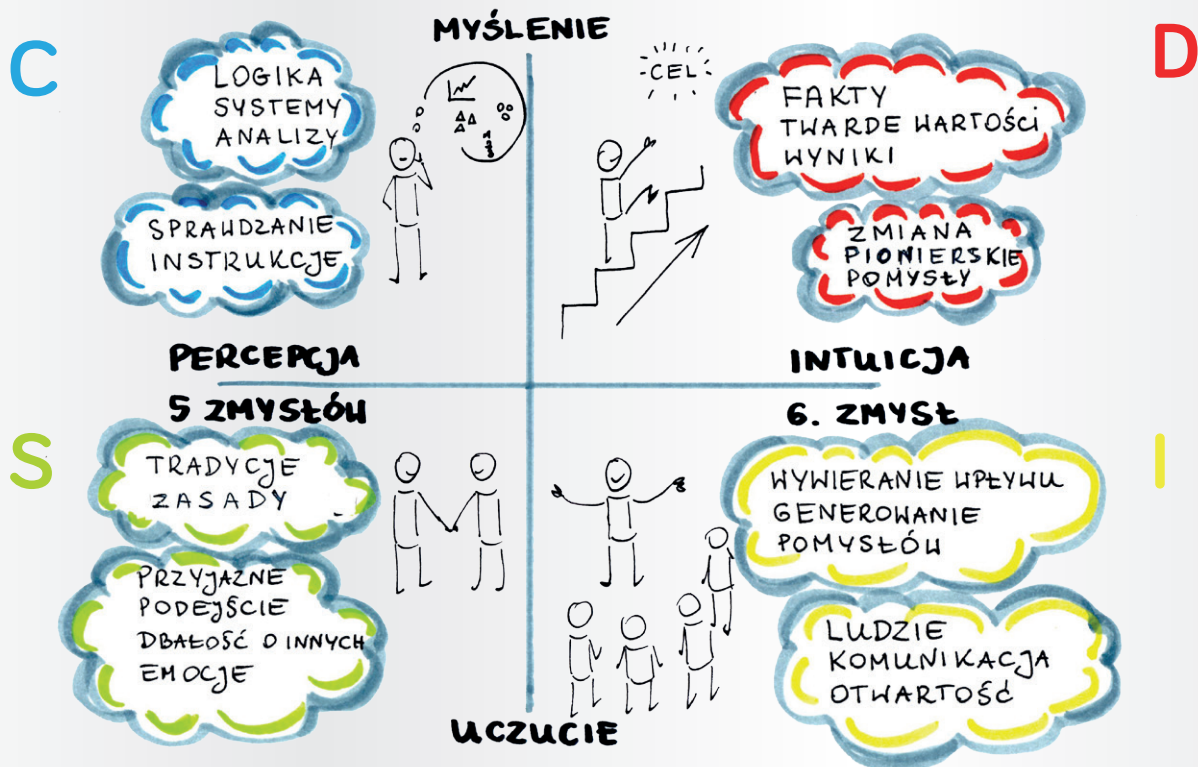 MYŚLENIE
C
LOGIKA
SYSTEMY
ANALIZY
SPRAWDZANIE
INSTRUKCJE
CEL
D
FAKTY
TWARDE WARTOŚCI
WYNIKI
ZMIANA
PIONIERSKIE
POMYSŁY
PERCEPCJA
5 ZMYSŁÓW
INTUICJA
6. ZMYSŁ
S
TRADYCJE
ZASADY
PRZYJAZNE
PODEJŚCIE
DBAŁOŚĆ O INNYCH
EMOCJE
I
WYWIERANIE WPŁYWU
GENEROWANIE
POMYSŁÓW
LUDZIE
KOMUNIKACJA
OTWARTOŚĆ
UCZUCIE